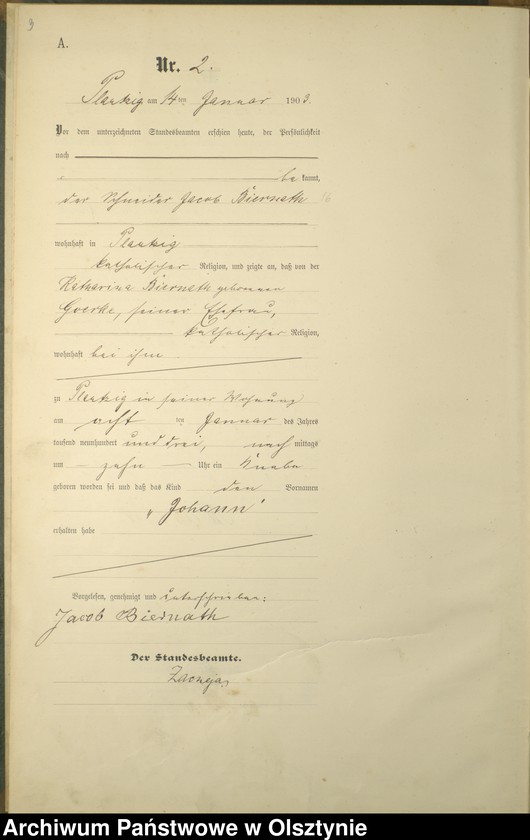 3
A.
Nr. 2.
Plautzig am 14ten Januar 1903.
Vor dem unterzeichneten Standesbeamten erschien heute, der Persönlichkeit
nach
be kannt,
der Schneider Jacob Biernath
wohnhaft in Plautzig
katholischer Religion, und zeigte an, daß von der
Katharina Biernath geborenen
Goerke, seiner Ehefrau,
katholischer Religion,
wohnhaft bei ihm
zu Plautzig in seiner Wohnung
am acht ten Januar des Jahres
tausend neunhundert und drei, nach mittags
um zehn Uhr ein Knabe
geboren worden sei und daß das Kind den Vornamen
„Johann“
erhalten habe
Vorgelesen, genehmigt und unterschrieben:
Jacob Biernath
Der Standesbeamte.
Archiwum Państwowe w Olsztynie